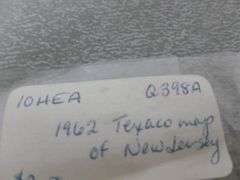 10HEA Q398A
1962 Texaco map
of New Jersey